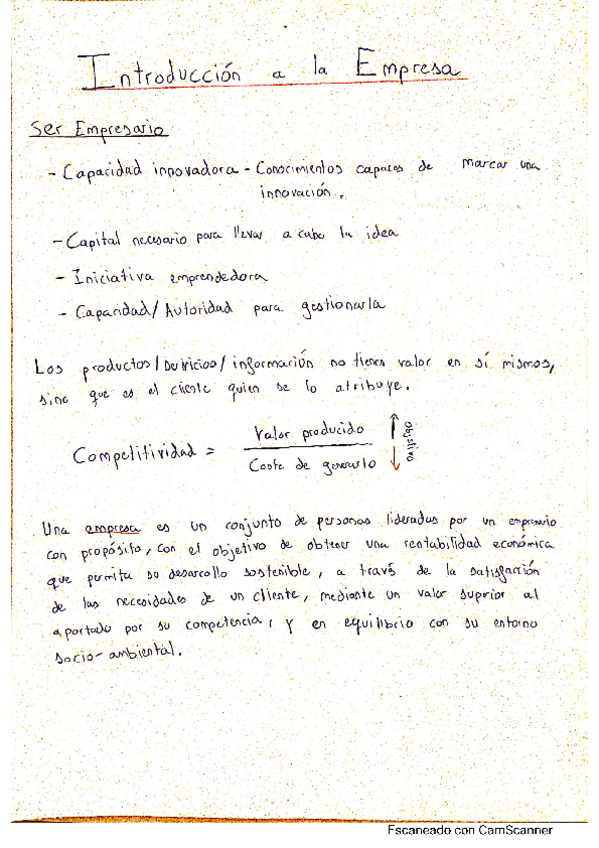 Introducción a la Empresa
Ser Empresario
- Capacidad innovadora - Conocimientos capaces de marcar una
innovación.
- Capital necesario para llevar a cabo la idea
- Iniciativa emprendedora
- Capacidad/Autoridad para gestionarla
Los productos/servicios/información no tienen valor en sí mismos,
sino que es el cliente quien se lo atribuye.
Competitividad = Valor producido ↑ objetivo
Coste de generarlo ↓
Una empresa es un conjunto de personas lideradas por un empresario
con propósito, con el objetivo de obtener una rentabilidad económica
que permita su desarrollo sostenible, a través de la satisfacción
de las necesidades de un cliente, mediante un valor superior al
aportado por su competencia, y en equilibrio con su entorno
socio-ambiental.
Escaneado con CamScanner